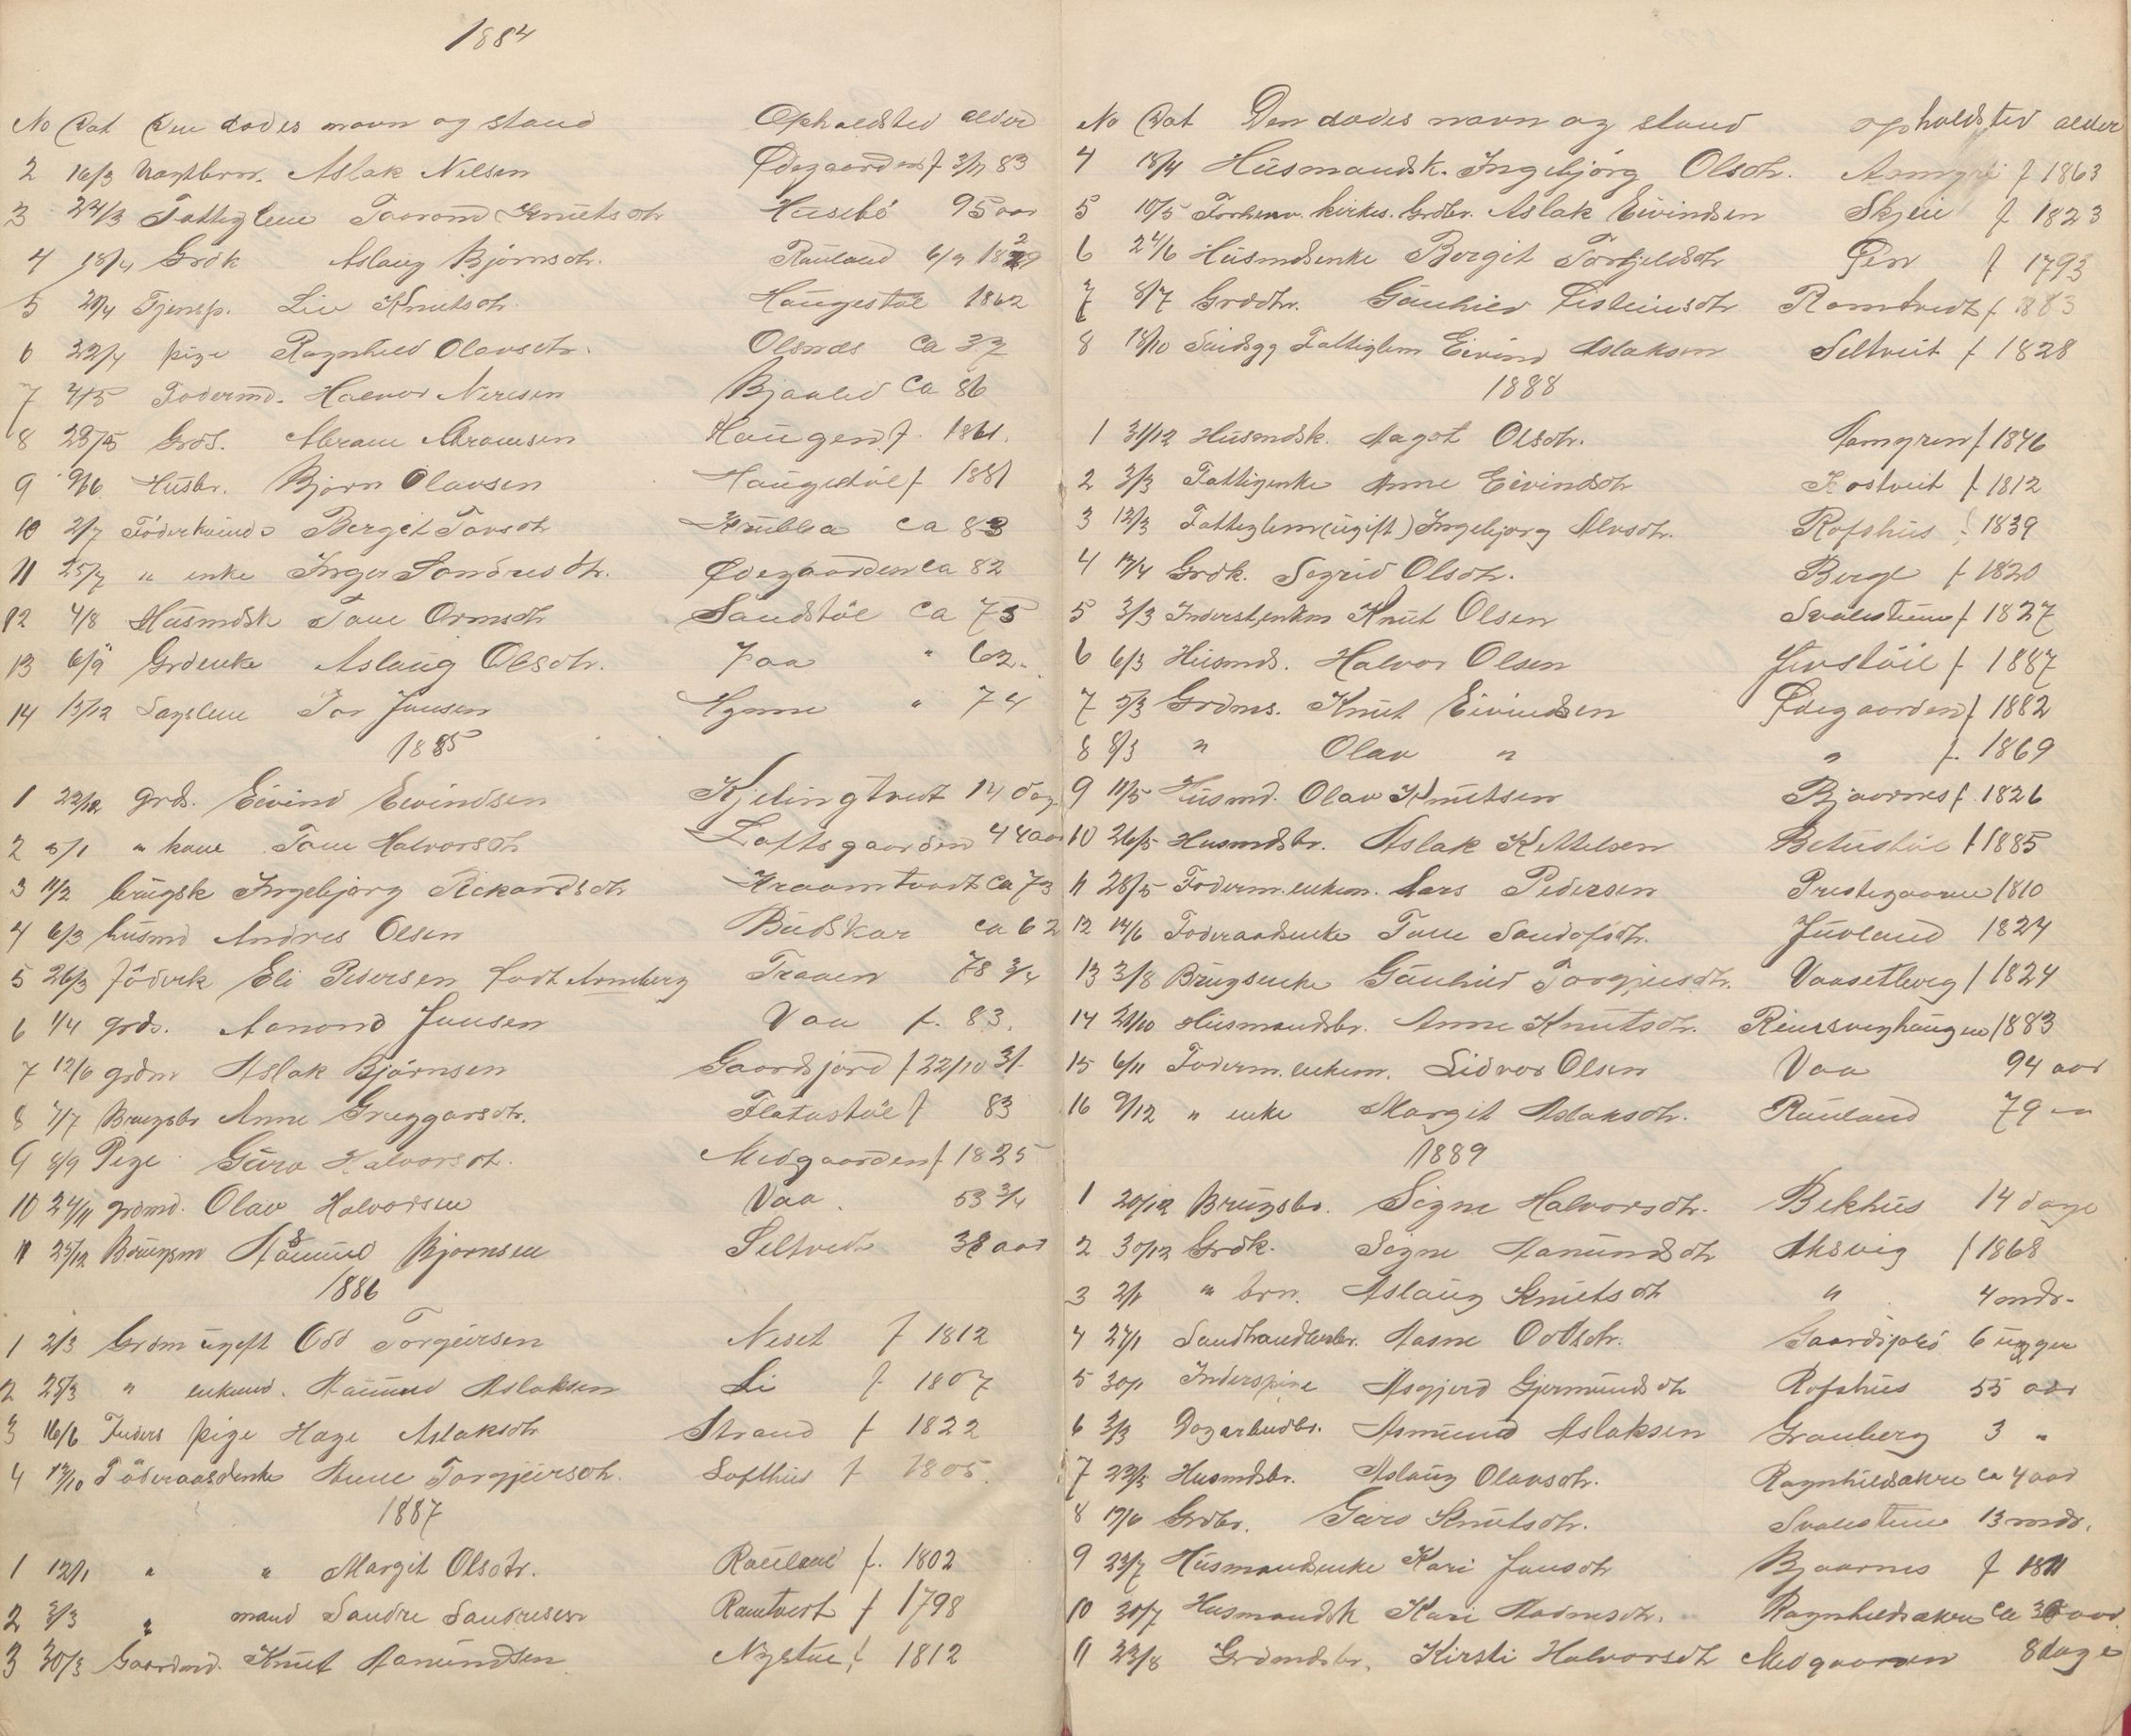 1884
No Dat Den dødes navn og stand Opholdsted alder
2 16/3 Aslak Nilsen Ødegaarden f 3/7 83
3 24/3 Fattiglem Taarand Knutsdtr Husebø 95 aar
4 18/4 Grdk Aslaug Bjørnsdtr. Rauland 6/9
5 20/4 Tjensp. Liv Knutsdtr Haugestøl 1862
6 22/4 pige Ragnhild Olavsdtr. Olsnes Ca 37
7 4/5 Fodermd. Halvor Nirisen Bjaaled Ca 86
8 28/5 Grds. Abram Abramsen Haugen f. 1861.
9 9/6 Husbr. Bjørn Olavsen Haugestøl f 1881
10 2/7 Föderkvinde Bergit Tovsdtr Krubba ca 83
11 25/7 " enke Inger Sondresdtr. Ødegaarden ca 82
12 4/8 Husmdsk Tone Ormsdtr Sandstøl Ca 75
13 6/9 Grdenke Aslaug Olsdtr. Jaa " 62.
14 15/12 Lægslem Tor Jonsen " 74
1885
1 22/12 grds. Eivind Eivindsen Kjelingtveit 14 dag
2 5/1 " kone Tone Halvorsdtr Loftsgaarden 44 aar
3 11/2 brugsk Ingebjørg Rickardsdtr Kraamtveit ca 73
4 6/3 husmd Andres Olsen Budskar ca 62
5 26/3 födrk Eli Pedersen födt Arneberg Traaen 78 3/4
6 1/4 grds. Aanond Jonsen Vaa f. 83.
7 12/6 grdm Aslak Bjørnsen Gaardsjord f 22/10 31
8 7/7 Brugsbr Anne Greggarsdtr. Flatastøl f 83
9 8/9 Pige Guro Halvorsdtr. Medgaarden f 1825
10 24/11 grdmd. Olav Halvorsen Vaa 53 3/4
11 25/12 Brugsm Aamund Bjørnsen Seltveit 38 aar
1886
1 2/3 Grdm ugift Odd Torgeirsen Neset f 1812
2 25/3 " enkmd. Aamund Aslaksen Li f 1807
3 16/6 Inders pige Hage Aslaksdtr Strand f 1822
4 17/10 Föderaadsenke Anne Torgjeirsdtr. Lofthus f 1805
1887
1 12/1 " " Margit Olsdtr. Rauland f. 1802
2 3/3 " mand Sondre Sondresen Ramtveit f 1798
3 30/3 Gaardmd. Knut Aamundsen Nystue f 1812
No Dat Den dødes navn og stand opholdsted alder
4 18/4 Husmandsk. Ingebjørg Olsdtr. f 1863
5 10/5 Forhenv. kirkes. Grdbr. Aslak Eivindsen Skjeie f 1823
6 24/6 Husmdsenke Bergit Torkjeldsdtr Øen f 1793
7 8/7 Grddtr. Gunhild Eisteinsdtr Ramtveit f 1883
8 18/10 Sindsyg Fattiglem Eivind Aslaksen Seltveit f 1828
1888
1 31/12 Husmdsk. Aagot Olsdtr. Aamgren f 1846
2 3/3 Fattigenke Anne Eivindsdtr Kostveit f 1812
3 12/3 Fattiglem (ugift) Ingebjørg Alvsdtr. Rofshus f 1839
4 17/4 Grdk. Sigrid Olsdtr. Berge f 1820
5 3/3 Inderst, enkm Knut Olsen Svalestuen f 1827
6 6/3 Husmds. Halvor Olsen Juvstøil f 1887
7 5/3 Grdms. Knut Eivindsen Ødegaarden f 1882
8 8/3 " Olav " " f. 1869
9 11/5 Husmd. Olav Knutsen Bjaarnes f. 1826
10 26/5 Husmdsbr. Aslak Kittelsen Betustøl f 1885
11 28/5 Foderm. enkem. Lars Pedersen Prestegaarden 1810
12 14/6 Foderaadsenke Tone Sandofsdtr. Juvland 1824
13 3/8 Brugsenke Gunhild Torgjusdtr. Vaasetberg f 1824
14 20/10 Husmandsbr. Anne Knutsdtr. Reinsveghaugen 1883
15 6/11 Foderm. enkem. Lidvor Olsen Vaa 94 aar
16 9/12 " enke Margit Aslaksdtr. Rauland 79 "
1889
1 20/12 Brugsbr. Signe Halvorsdtr. Bekhus 14 dage
2 30/12 Grdk. Signe Aamundsdtr Aksvig f 1868
3 2/1 " brn. Aslaug Knutsdtr " 4 mdr.
4 27/1 Landhandlerbr. Aasne Oddsdtr. Gaardsjord 6 uger
5 30/1 Inderspige Asgjerd Gjermundsdtr Rofshus 55 aar
6 3/3 Dagarbeidbr. Asmund Aslaksen Granberg 3 "
7 22/5 Husmdsbr. Aslaug Olavsdtr. Ragnhildsakre ca 4 aar
8 19/6 Grdbr. Guro Knutsdtr. Svalestuen 13 mdr.
9 23/7 Husmandsenke Kari Jonsdtr Bjaarnes f 1811
10 30/7 Husmandsk Kari Aadnesdtr. Ragnhildsakre ca 36 aar
11 23/8 Grdmdsbr. Kirsti Halvorsdtr Medgaarden 8 dage